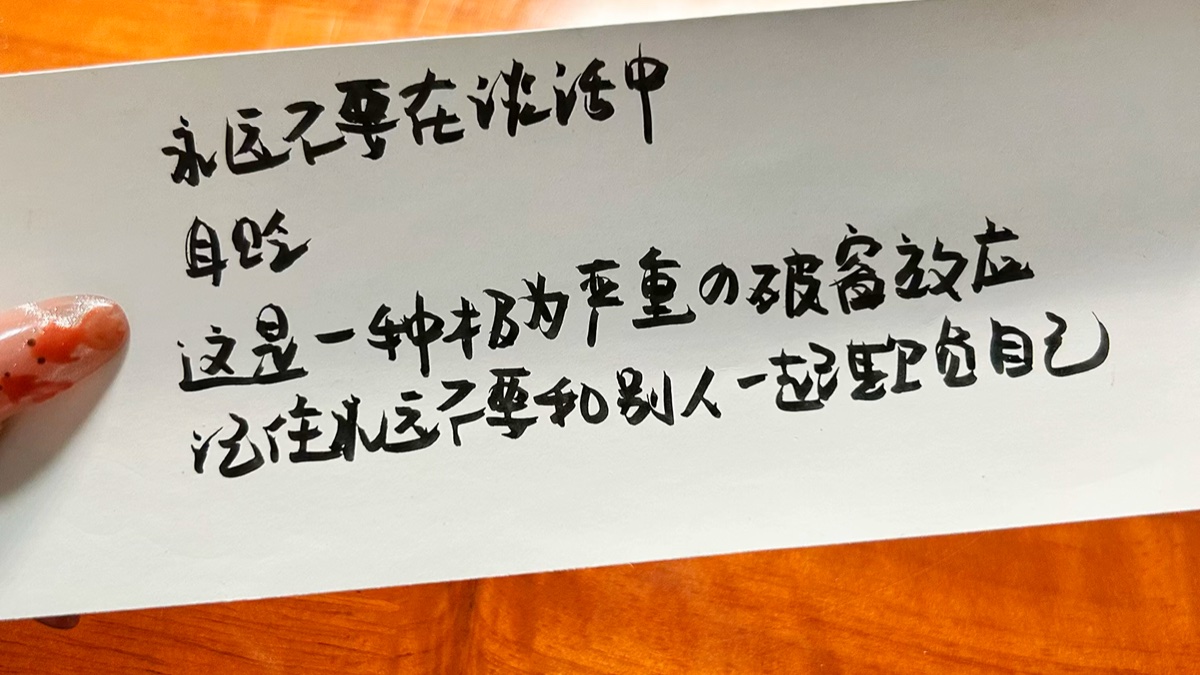 永远不要在谈话中
自贬
这是一种极为严重の破窗效应
记住永远不要和别人一起欺负自己